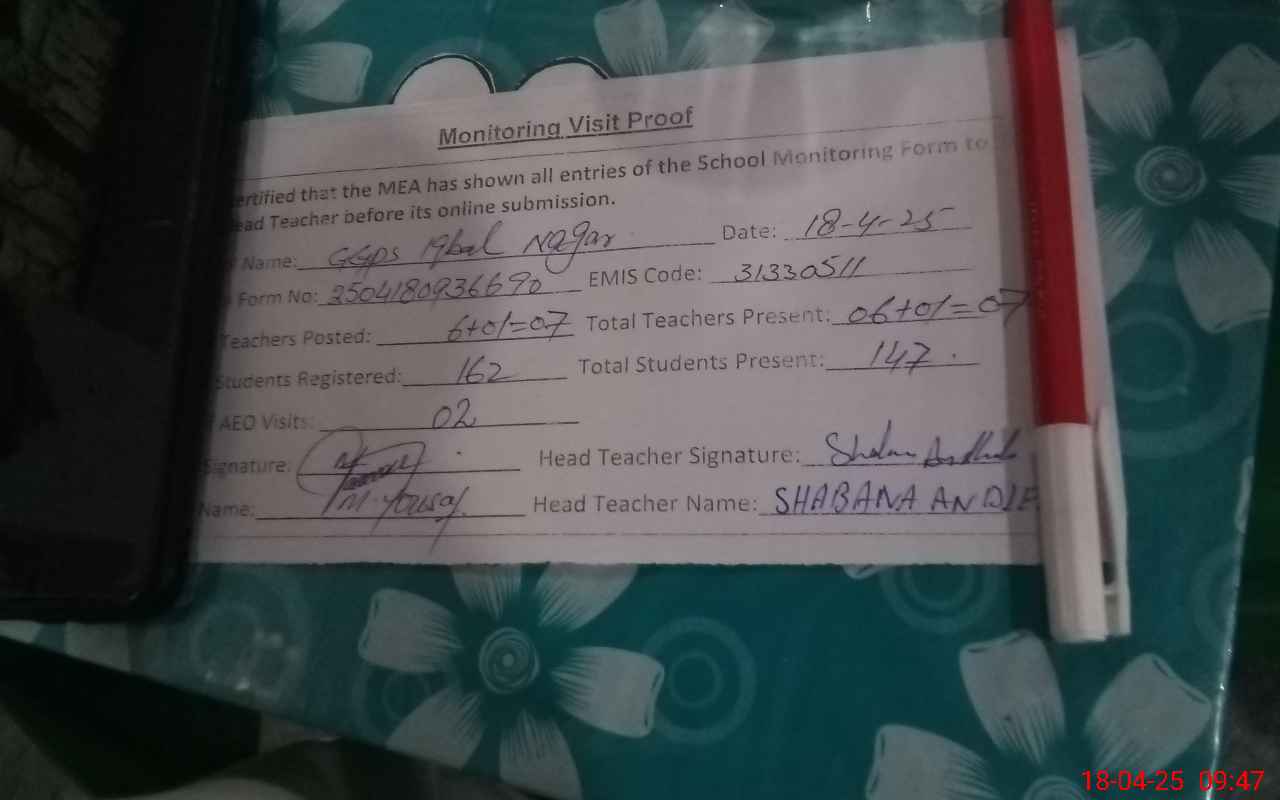 Monitoring Visit Proof
ertified that the MEA has shown all entries of the School Monitoring Form to
ead Teacher before its online submission.
Name: GGPS Iqbal Nagar Date: 18-4-25
Form No: 250418093669 EMIS Code: 31330511
Teachers Posted: 6+01=07 Total Teachers Present: 06+01=07
Students Registered: 162 Total Students Present: 147
AEO Visits: 02
Signature: Head Teacher Signature:
Name: M. Yousaf Head Teacher Name: SHABANA ANDLE
18-04-25 09:47